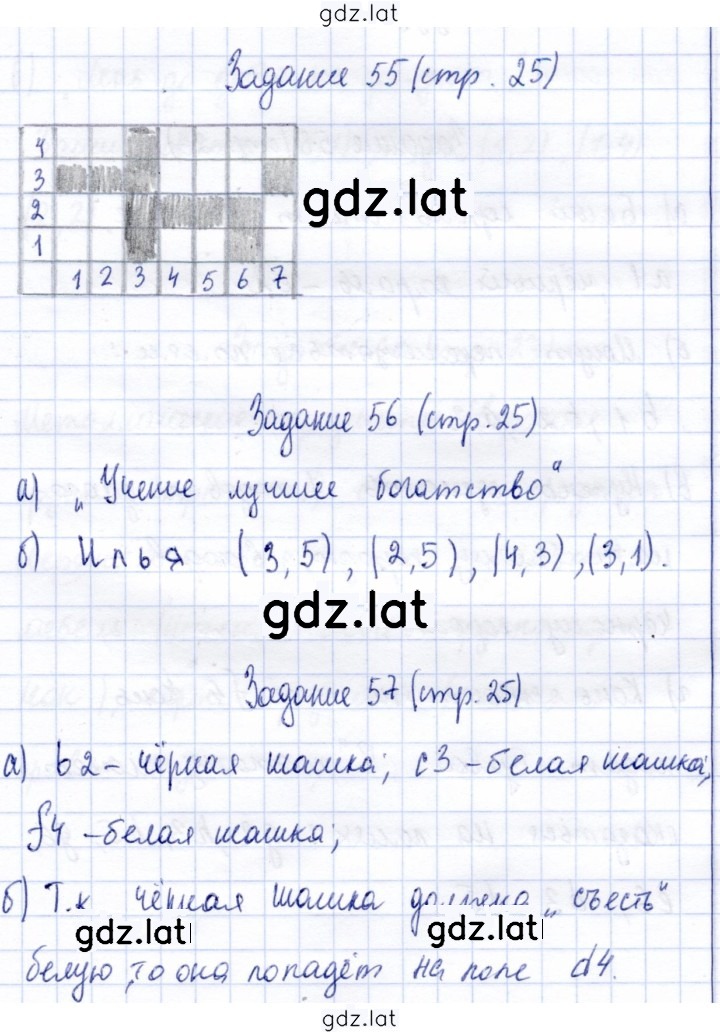 gdz.lat
Задание 55 (стр. 25)
4
3
2
1
1 2 3 4 5 6 7
gdz.lat
Задание 56 (стр. 25)
а) „Учение лучшее богатство"
б) Илья (3,5), (2,5), (4,3), (3,1).
gdz.lat
Задание 57 (стр. 25)
а) b2 – чёрная шашка; c3 – белая шашка;
f4 – белая шашка;
б) Т.к чёрная шашка должна „съесть"
gdz.lat gdz.lat
белую, то она попадёт на поле d4.
gdz.lat